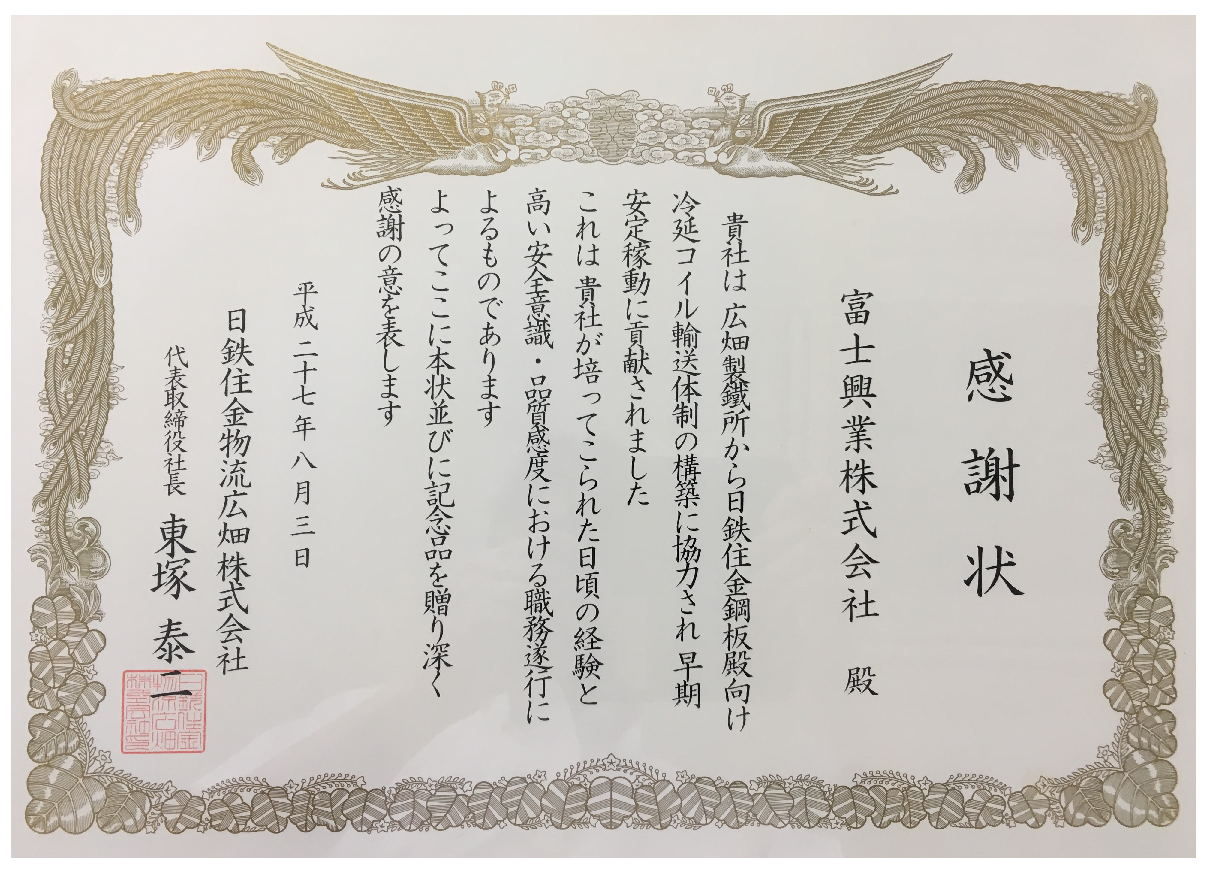 感謝状
富士興業株式会社 殿
貴社は 広畑製鐵所から日鉄住金鋼板殿向け
冷延コイル輸送体制の構築に協力され 早期
安定稼動に貢献されました
これは 貴社が培ってこられた日頃の経験と
高い安全意識・品質感度における職務遂行に
よるものであります
よってここに本状並びに記念品を贈り深く
感謝の意を表します
平成二十七年八月三日
日鉄住金物流広畑株式会社
代表取締役社長 東塚 泰二